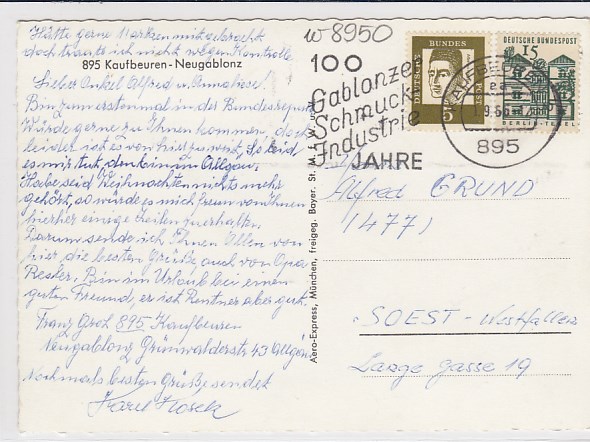 Hätte gerne Marken mitgebracht
doch traute ich nicht wegen Kontrolle
895 Kaufbeuren-Neugablonz
Lieber Onkel Alfred u. Annaliese!
Bin zum erstenmal in der Bundesrepu
Würde gerne zu Ihnen kommen, doch
leider ist es von hier zu weit. So leid
es mir tut, denk bin im Allgäu.
Habe seid Weihnachten nichts mehr
gehört, so würde es mich freun von Ihnen
hierher einige Zeilen zu erhalten.
Darum sende ich Ihnen Allen von
hier die besten Grüße auch von Opa
Resler. Bin im Urlaub bei einen
guten Freund, er ist Rentner aber gut.
Franz Groh 895 Kaufbeuren
Neugablonz Grünwalderstr 43 Allgäu
Nochmals besten Grüße sendet
Karel
Aero-Express, München, freigeg. Bayer. St. M. f. W. u.
w 8950
100
Gablonzer
Schmuck
Industrie
JAHRE
DEUTSCHE
BUNDES
POST
5
DEUTSCHE BUNDESPOST
15
BERLIN-TEGEL
KAUFBEUREN
895
Alfred GRUND
(477)
SOEST-Westfallen
Lange gasse 19